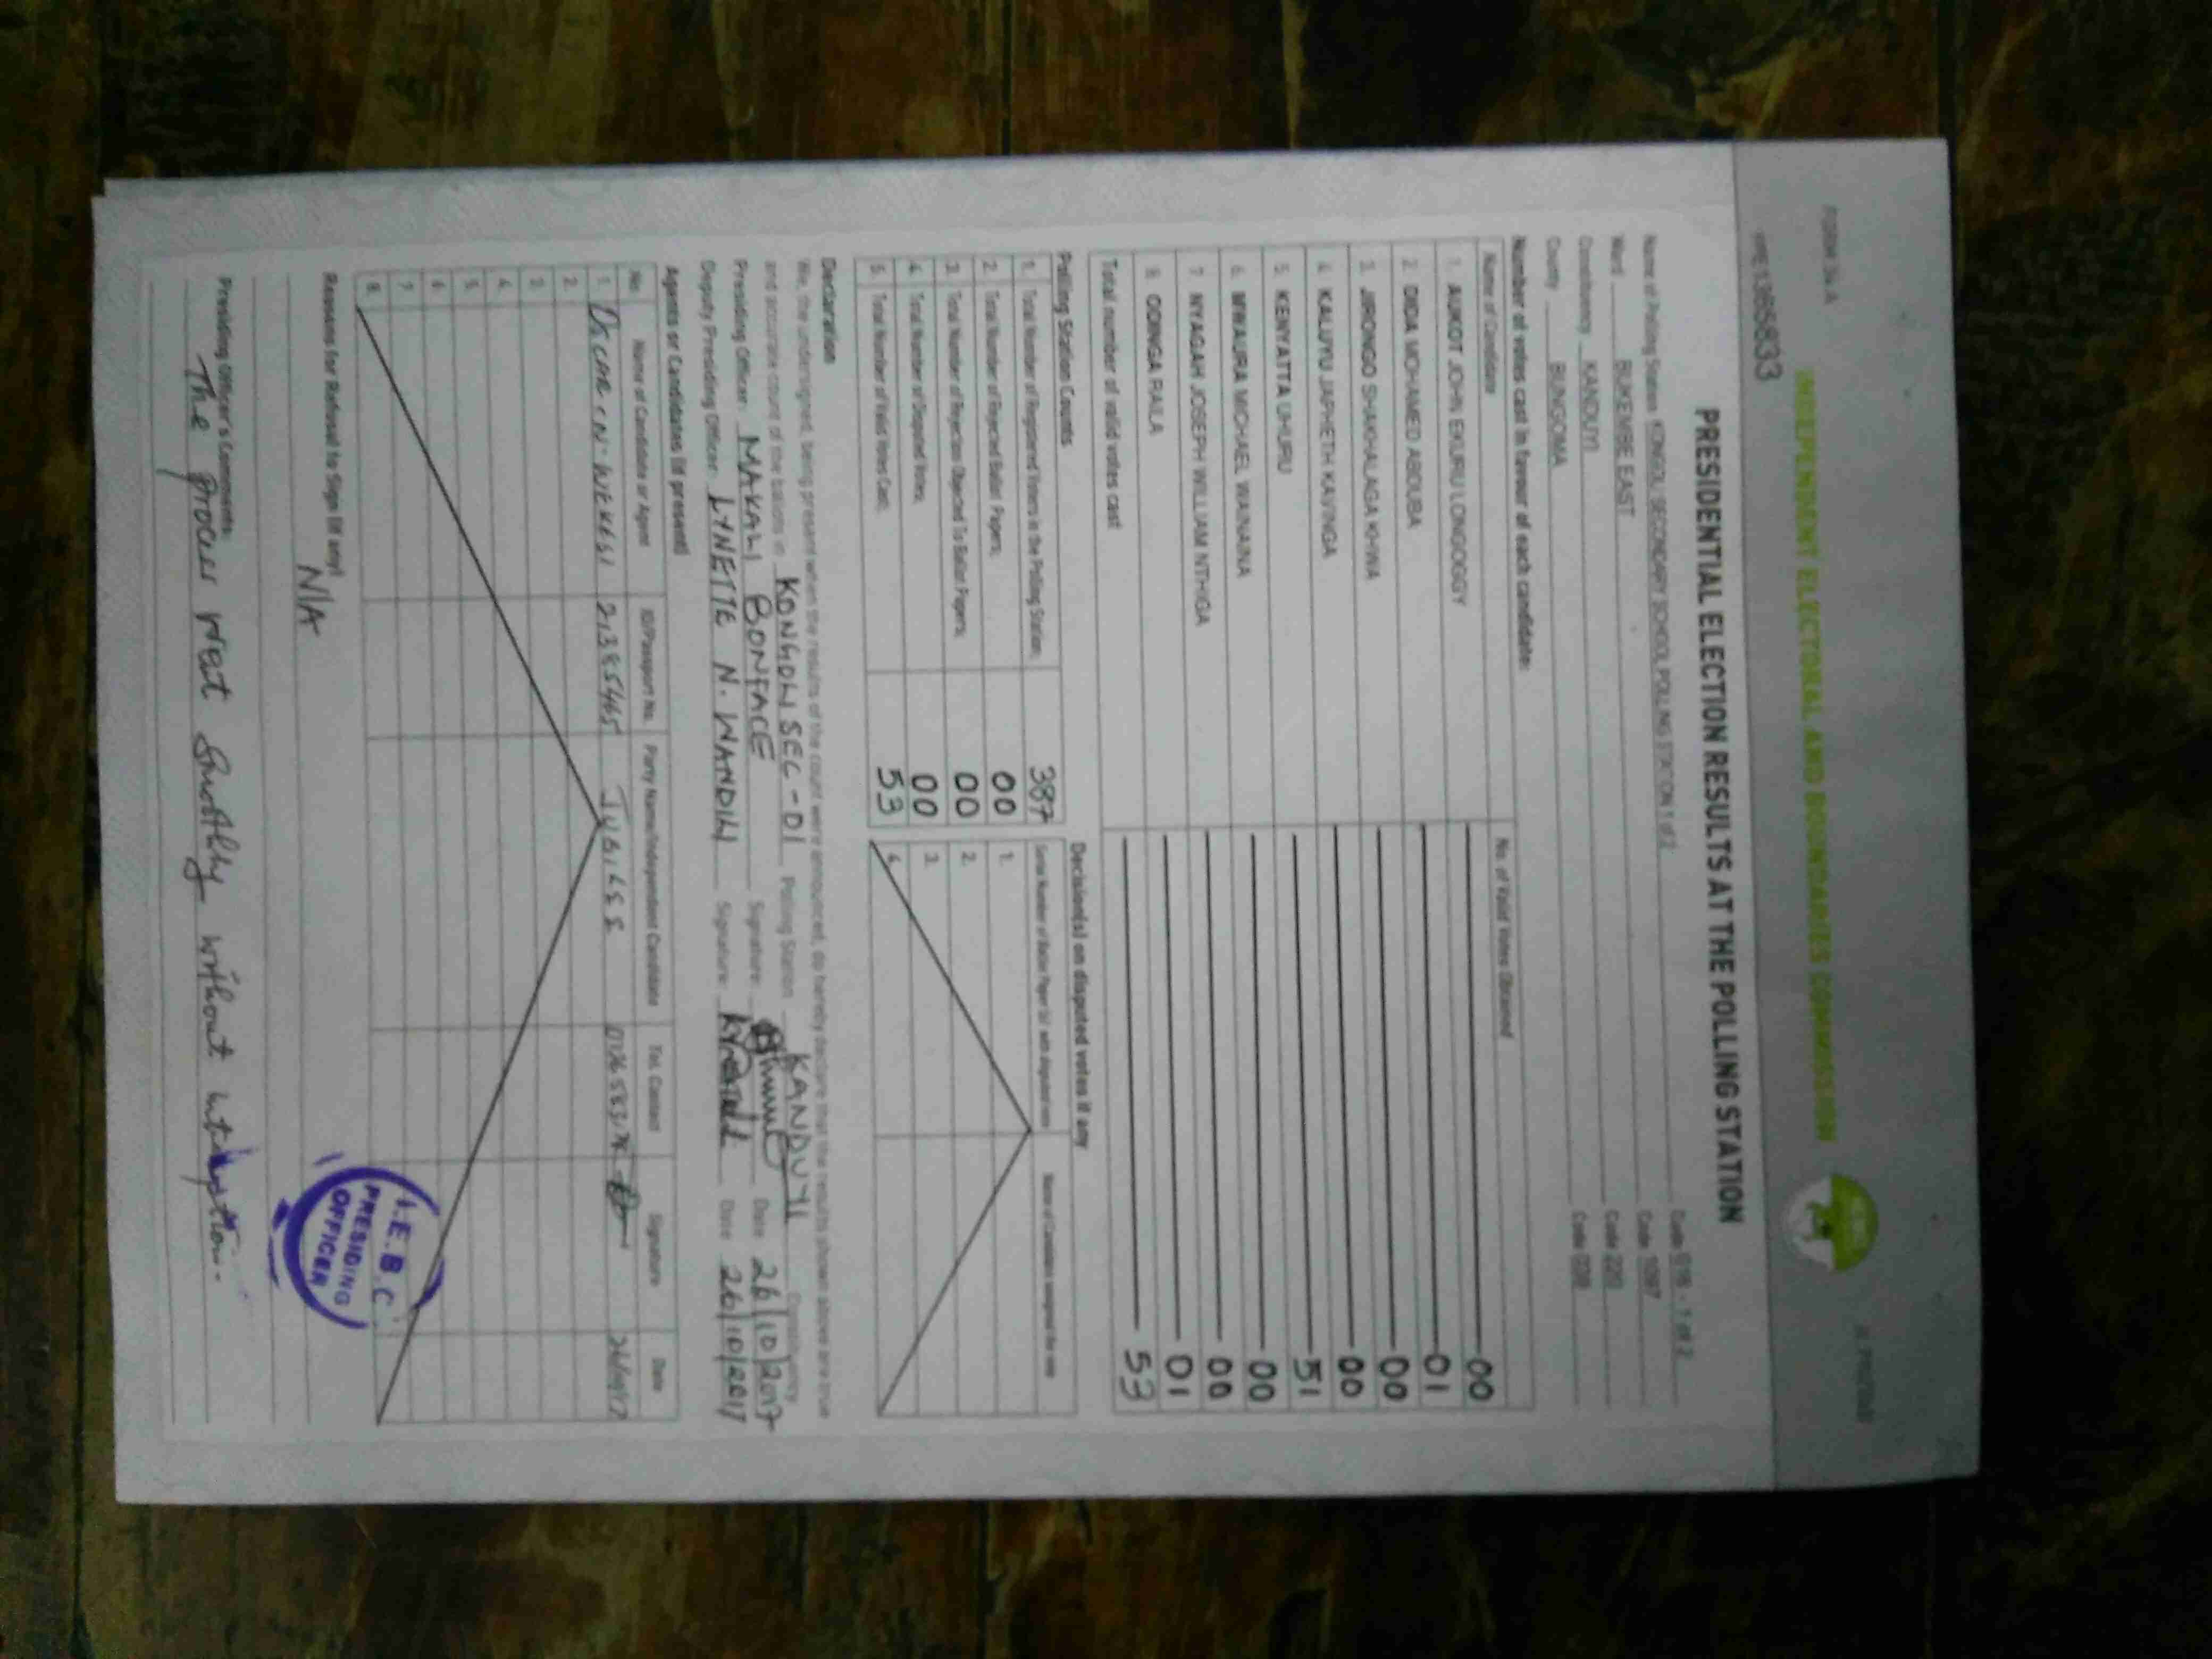 FORM 34 A
INDEPENDENT ELECTORAL AND BOUNDARIES COMMISSION
PRESIDENTIAL ELECTION RESULTS AT THE POLLING STATION
Name of Polling Station KONGOLI SECONDARY SCHOOL POLLING STATION 1 of 2 Code 018 - 1 of 2
Ward BUKEMBE EAST Code 1097
Constituency KANDUYI Code 220
County BUNGOMA Code 039
Number of votes cast in favour of each candidate:
Name of Candidate No. of Valid Votes Obtained
1. AUKOT JOHN EKURU LONGOGGY 00
2. DIDA MOHAMED ABDUBA 01
3. JIRONGO SHAKHALAGA KHWA 00
4. KALUYU JAPHETH KAVINGA 00
5. KENYATTA UHURU 51
6. MWAURA MICHAEL WAINAINA 00
7. NYAGAH JOSEPH WILLIAM NTHIGA 00
8. ODINGA RAILA 01
Total number of valid votes cast 53
Polling Station Counts
1. Total Number of Registered Voters in the Polling Station; 387
2. Total Number of Rejected Ballot Papers; 00
3. Total Number of Rejection Objected To Ballot Papers; 00
4. Total Number of Disputed Votes; 00
5. Total Number of Valid Votes Cast; 53
Decision(s) on disputed votes if any
Serial Number of Ballot Paper (s) with disputed vote Name of Candidate assigned the vote
1.
2.
3.
4.
Declaration
We, the undersigned, being present when the results of the count were announced, do hereby declare that the results shown above are a true
and accurate count of the ballots in KONGOLI SEC - 01 Polling Station KANDUYI Constituency
Presiding Officer: MAKALI BONFACE Signature: Date 26/10/2017
Deputy Presiding Officer: LYNETTE N. WANDILI Signature: Date 26/10/2017
Agents or Candidates (if present)
No. Name of Candidate or Agent ID/Passport No. Party Name/Independent Candidate Tel. Contact Signature Date
1. WEKESI 21385465 JUBILEE
2.
3.
4.
5.
6.
7.
8.
Reasons for Refusal to Sign (if any)
N/A
Presiding Officer's Comments:
The process went smoothly without
I.E.B.C
PRESIDING
OFFICER